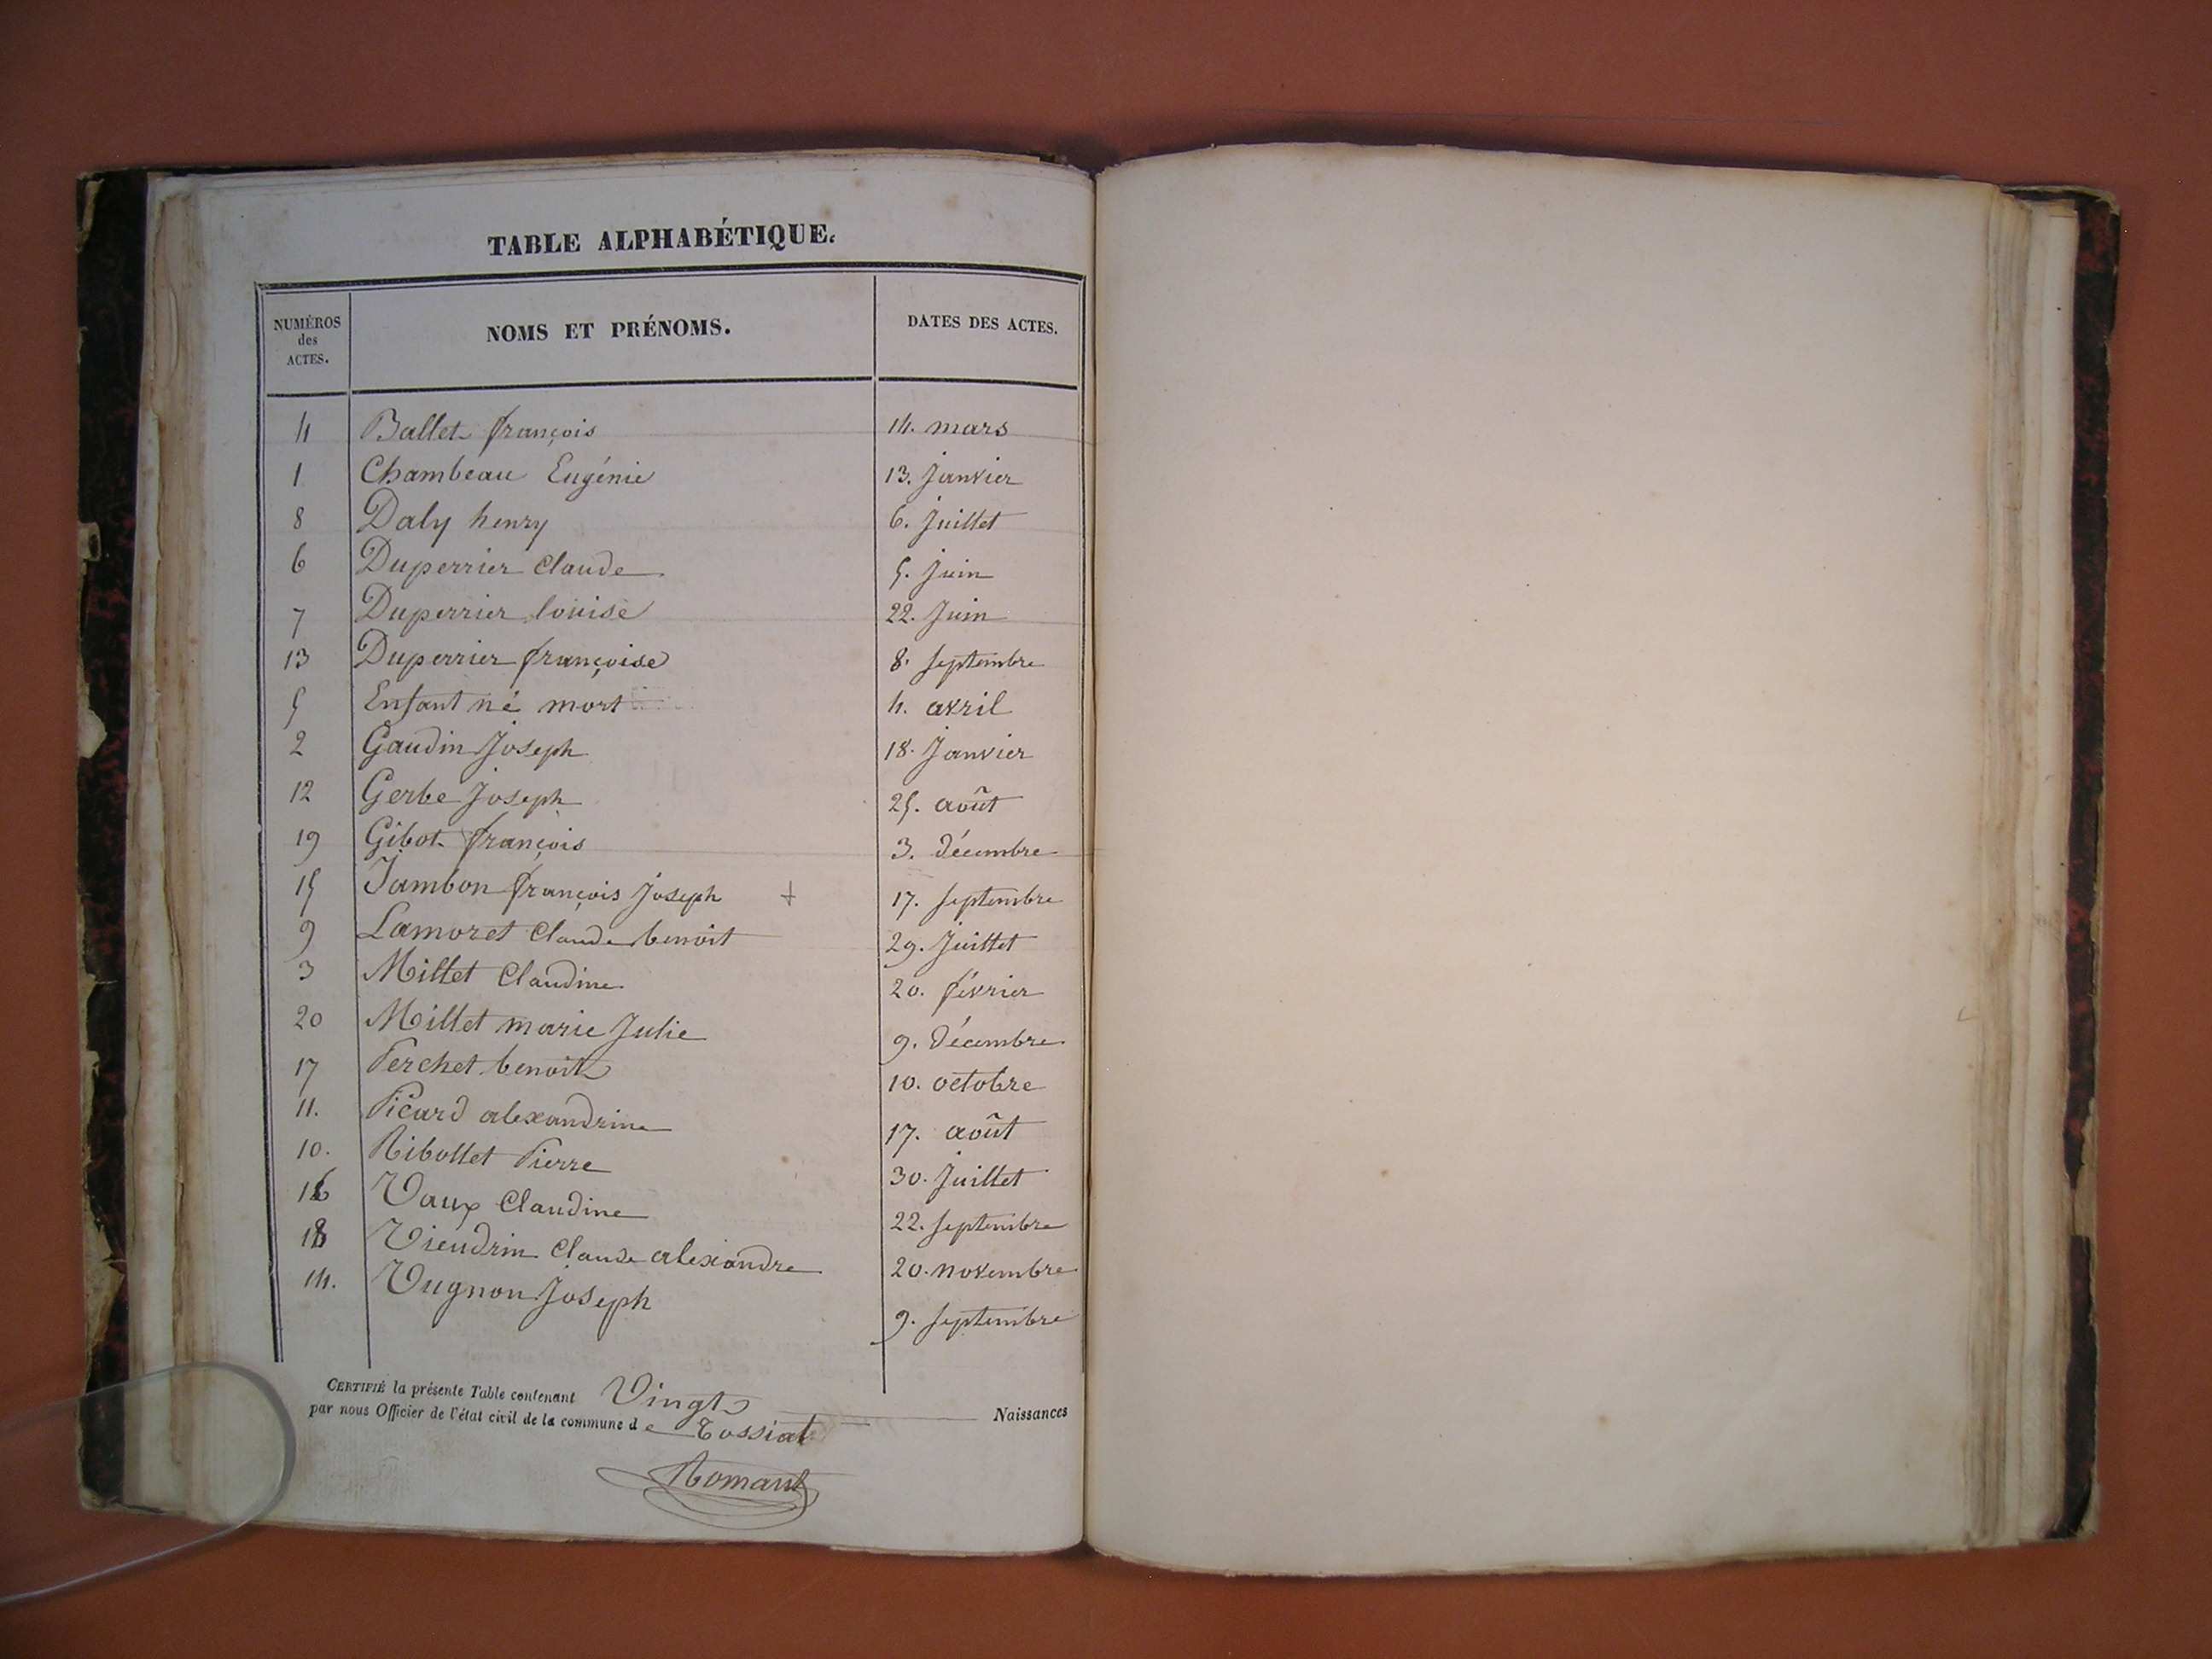 TABLE ALPHABÉTIQUE.
NUMÉROS des ACTES. NOMS ET PRÉNOMS. DATES DES ACTES.
4 Ballet françois 14. mars
1 Chambeau Eugénie 13. janvier
8 Daly henry 6. Juillet
6 Duperrier Claude 5. juin
7 Duperrier louise 22. Juin
13 Duperrier françoise 8. septembre
5 Enfant né mort 4. avril
2 Gaudin Joseph 18. Janvier
12 Gerbe Joseph 25. août
19 Gibot françois 3. décembre
15 Jambon françois Joseph + 17. septembre
9 Lamoret Claude benoit 29. Juillet
3 Millet Claudine 20. février
20 Millet marie Julie 9. Décembre
17 Perchet benoit 10. octobre
11. Picard alexandrine 17. août
10. Ribollet Pierre 30. Juillet
16 Vaux Claudine 22. septembre
18 Vieudrin Claude alexandre 20. novembre
14. Vugnon Joseph 9. septembre
CERTIFIÉ la présente Table contenant Vingt Naissances
par nous Officier de l'état civil de la commune de Tossiat
Romand